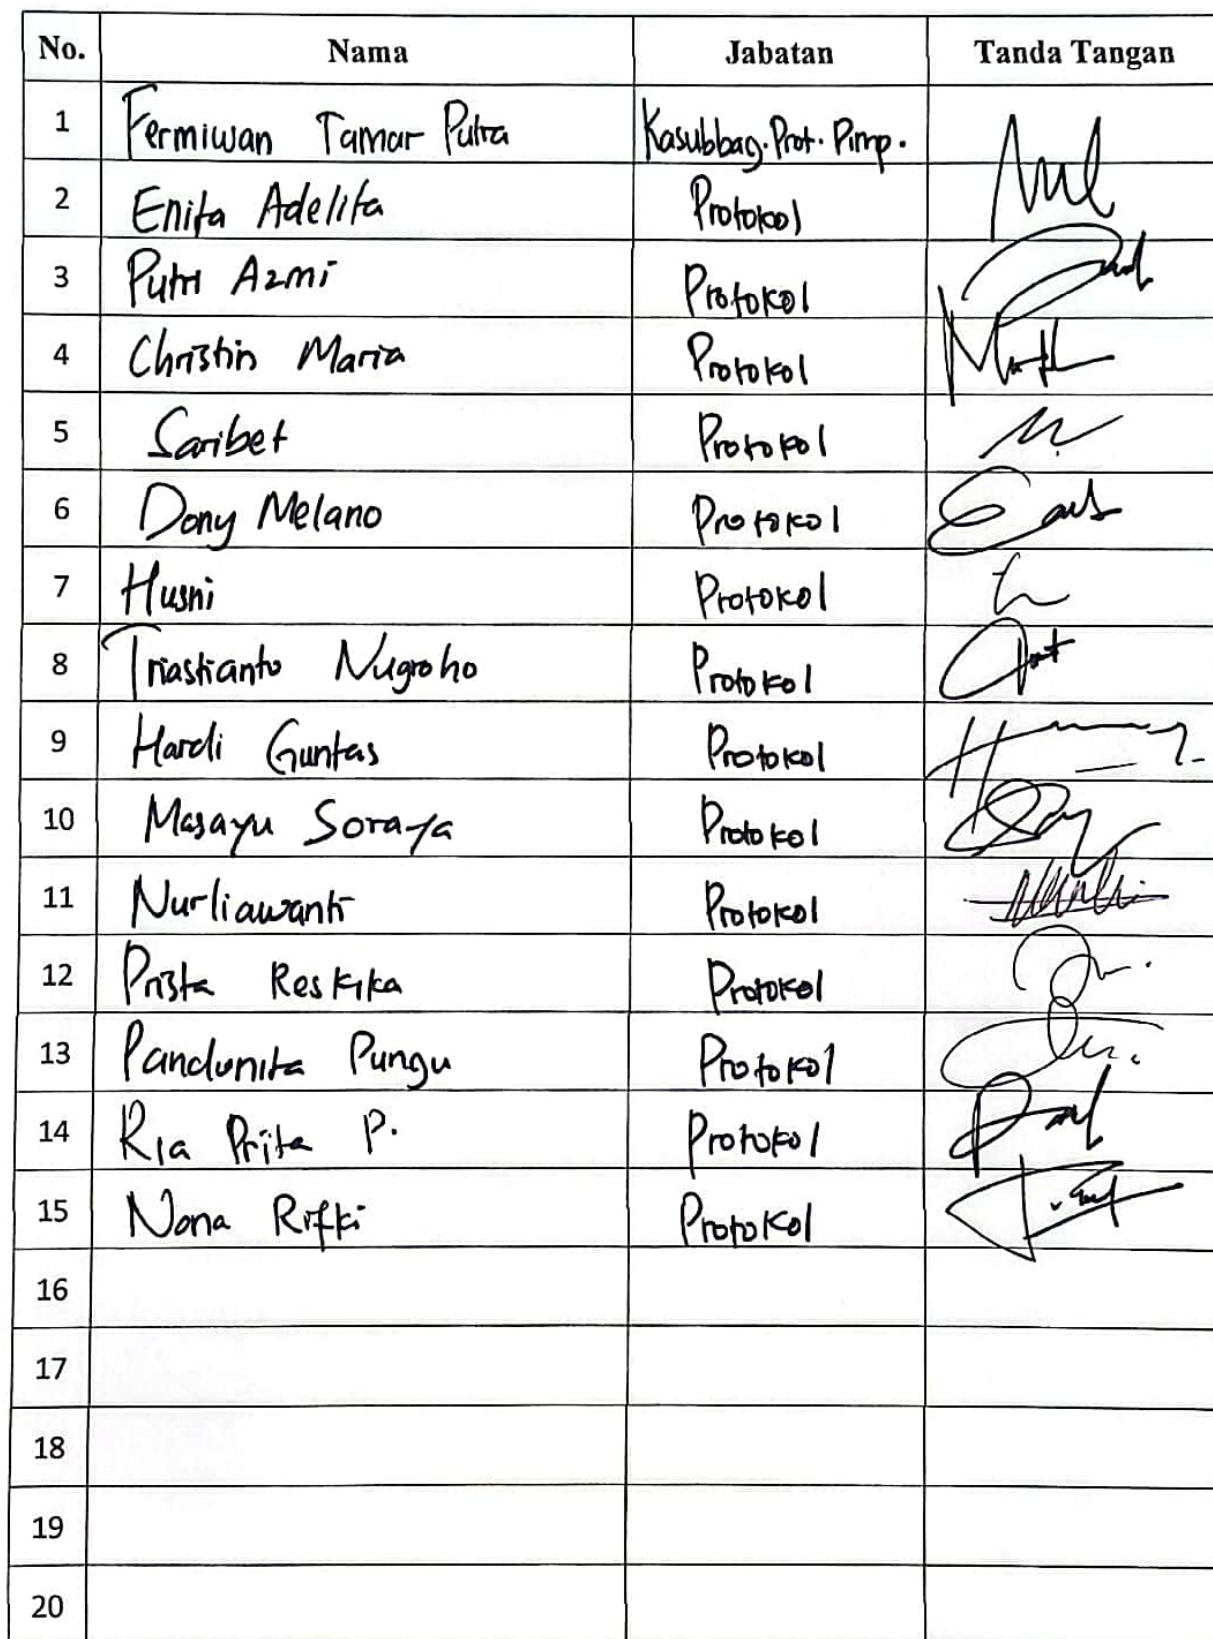 No. Nama Jabatan Tanda Tangan
1 Fermiwan Tamar Putra Kasubbag. Prot. Pimp.
2 Enita Adelita Protokol
3 Putri Azmi Protokol
4 Christin Maria Protokol
5 Saribet Protokol
6 Dony Melano Protokol
7 Husni Protokol
8 Triastianto Nugroho Protokol
9 Hardi Guntas Protokol
10 Masayu Soraya Protokol
11 Nurliawanti Protokol
12 Prista Reskika Protokol
13 Pandunita Pungu Protokol
14 Ria Prita P. Protokol
15 Nona Rifki Protokol
16
17
18
19
20